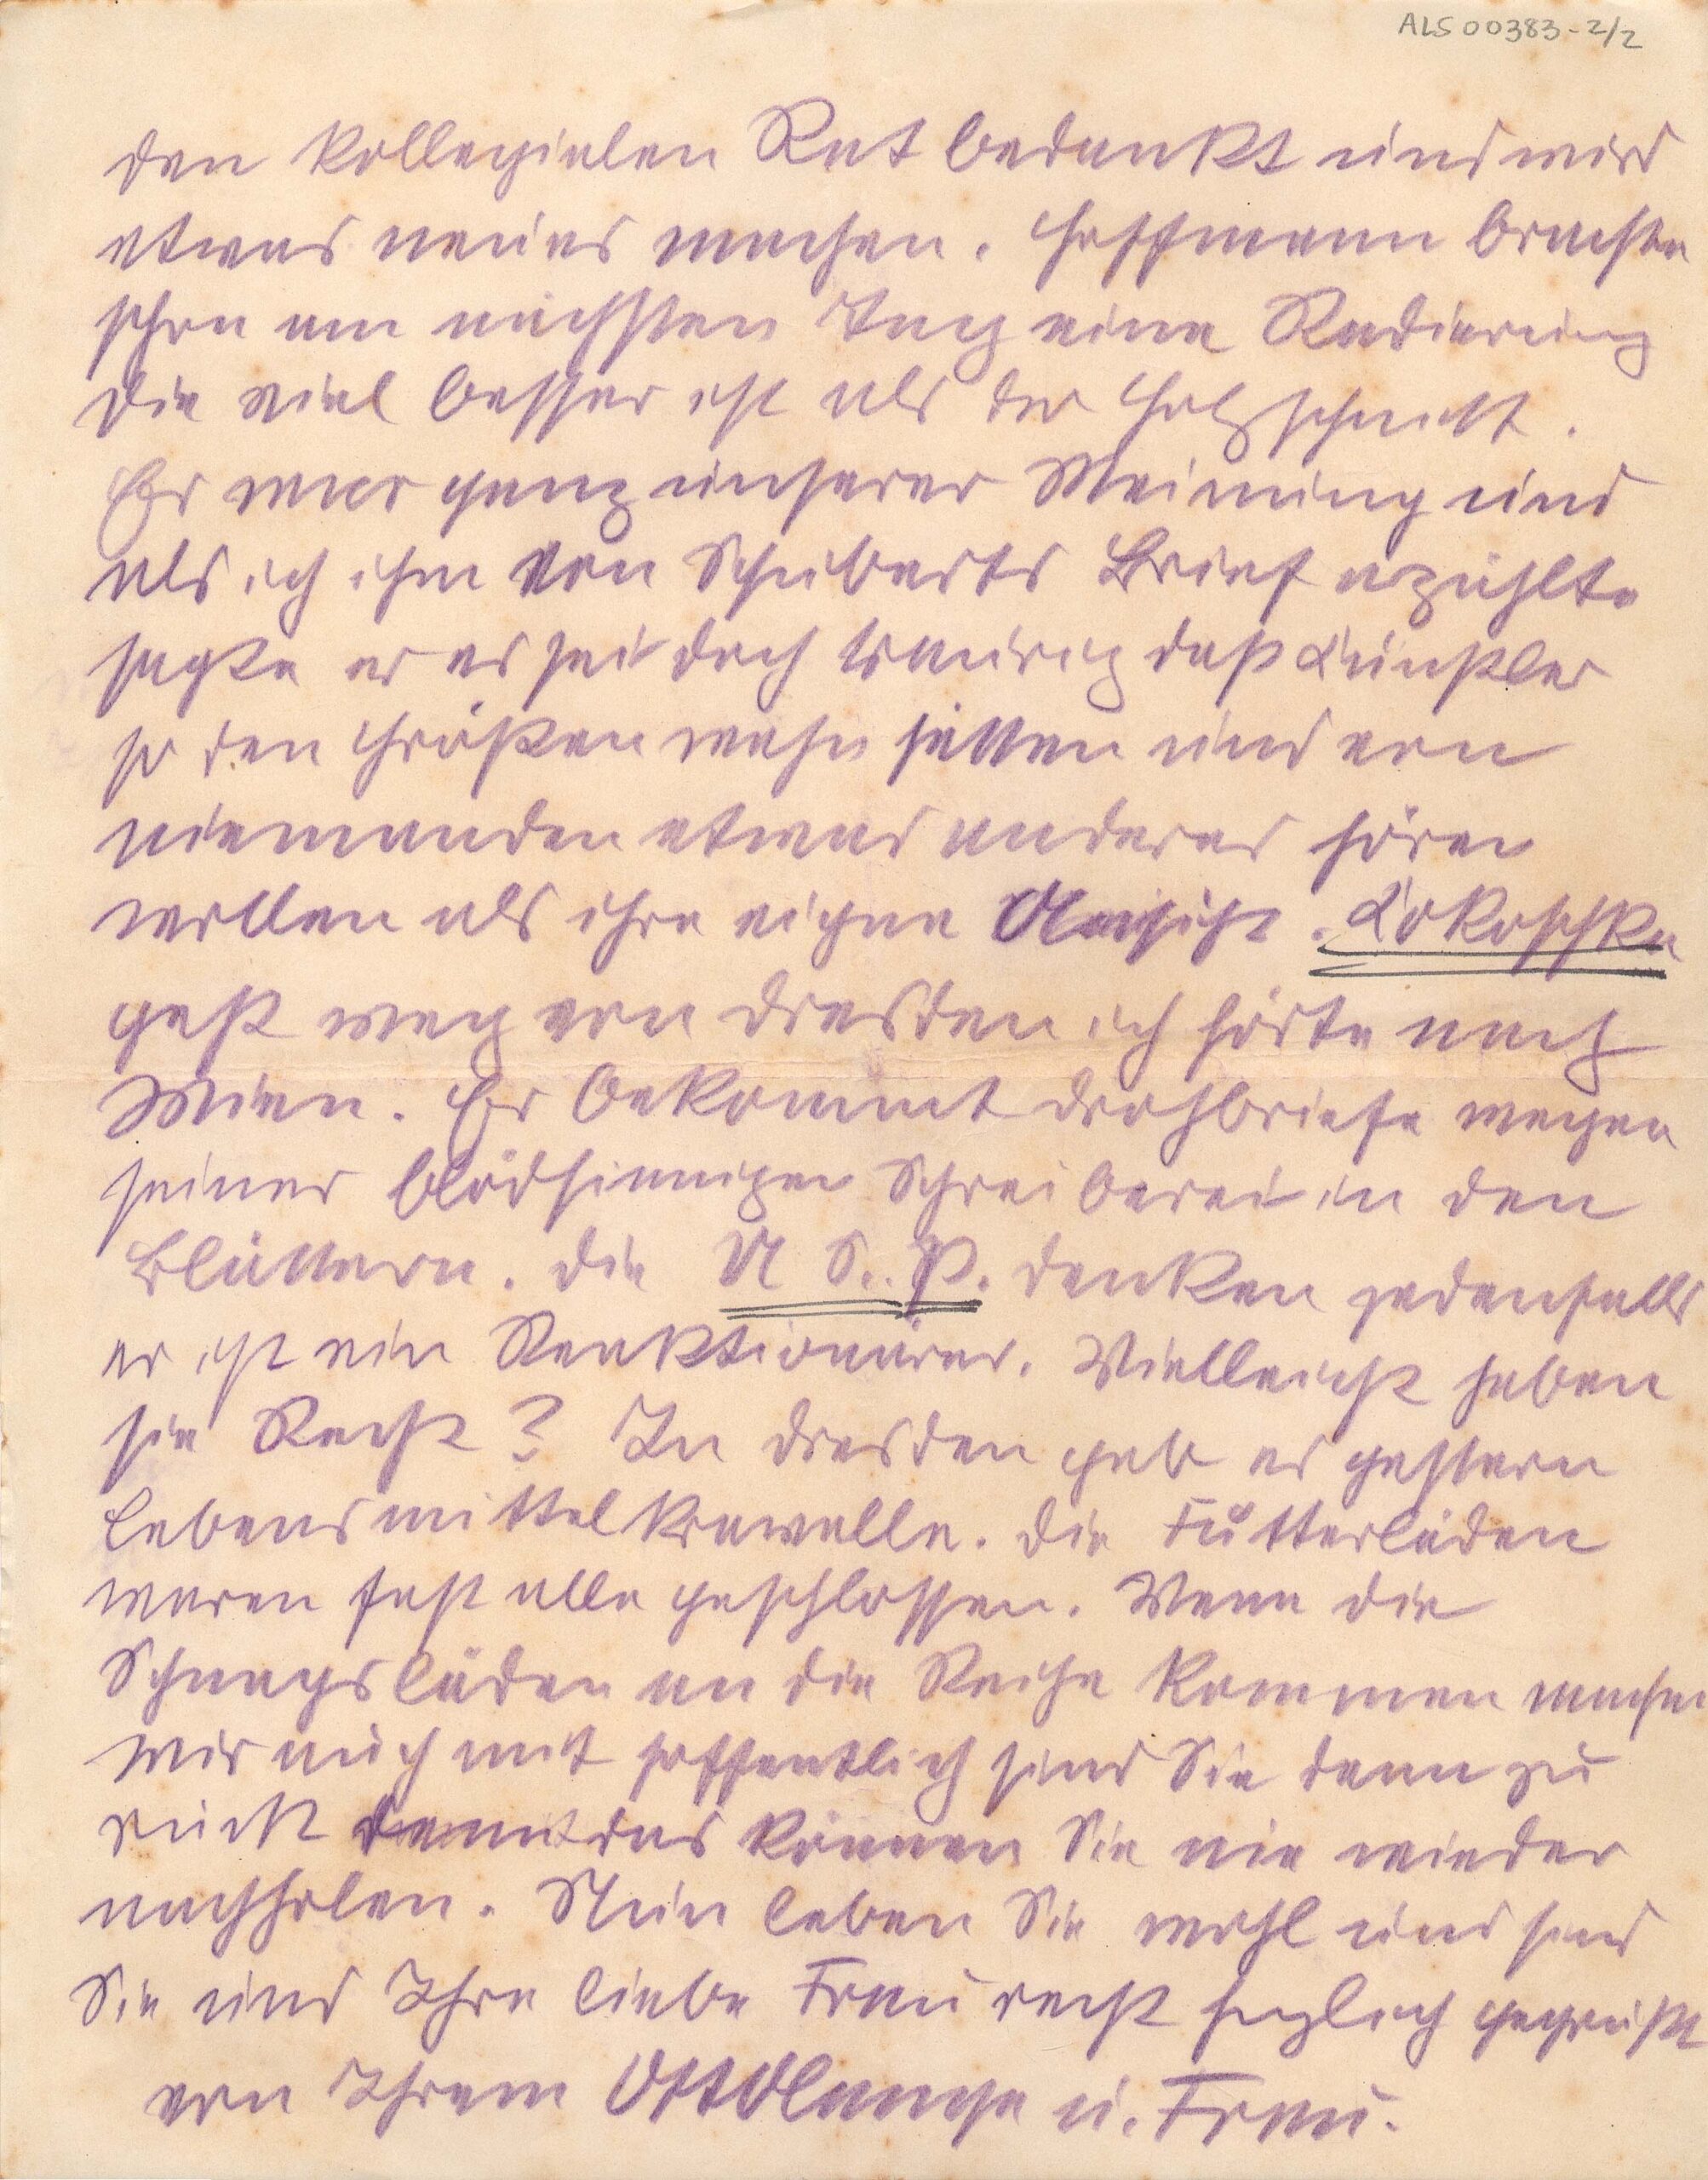 ALS 00383-2/2
den kollegialen Rat bedankt und wird
etwas neues machen. Hoffmann brachte
schon am nächsten Tag eine Radierung
die viel besser ist als der Holzschnitt.
Er war ganz unserer Meinung und
als ich ihm von Schuberts Brief erzählte
sagte er es sei doch traurig daß Künstler
so den Größenwahn hätten und von
niemanden etwas anderes hören
wollen als ihre eigne Ansicht. Kokoschka
geht weg von Dresden ich hörte nach
Wien. Er bekommt Drohbriefe wegen
seiner blödsinnigen Schreiberei in den
Blättern. Die U S. P. denken jedenfalls
er ist ein Reaktionärer. Vielleicht haben
sie Recht? In Dresden gab es gestern
Lebensmittelkrawalle. Die Futterläden
waren fast alle geschlossen. Wenn die
Schnapsläden an die Reihe kommen machen
wir auch mit hoffentlich sind Sie dann zu
rück denn das können Sie nie wieder
nachholen. Nun leben Sie wohl und sind
Sie und Ihre liebe Frau recht herzlich gegrüßt
von Ihrem Otto Lange u. Frau.